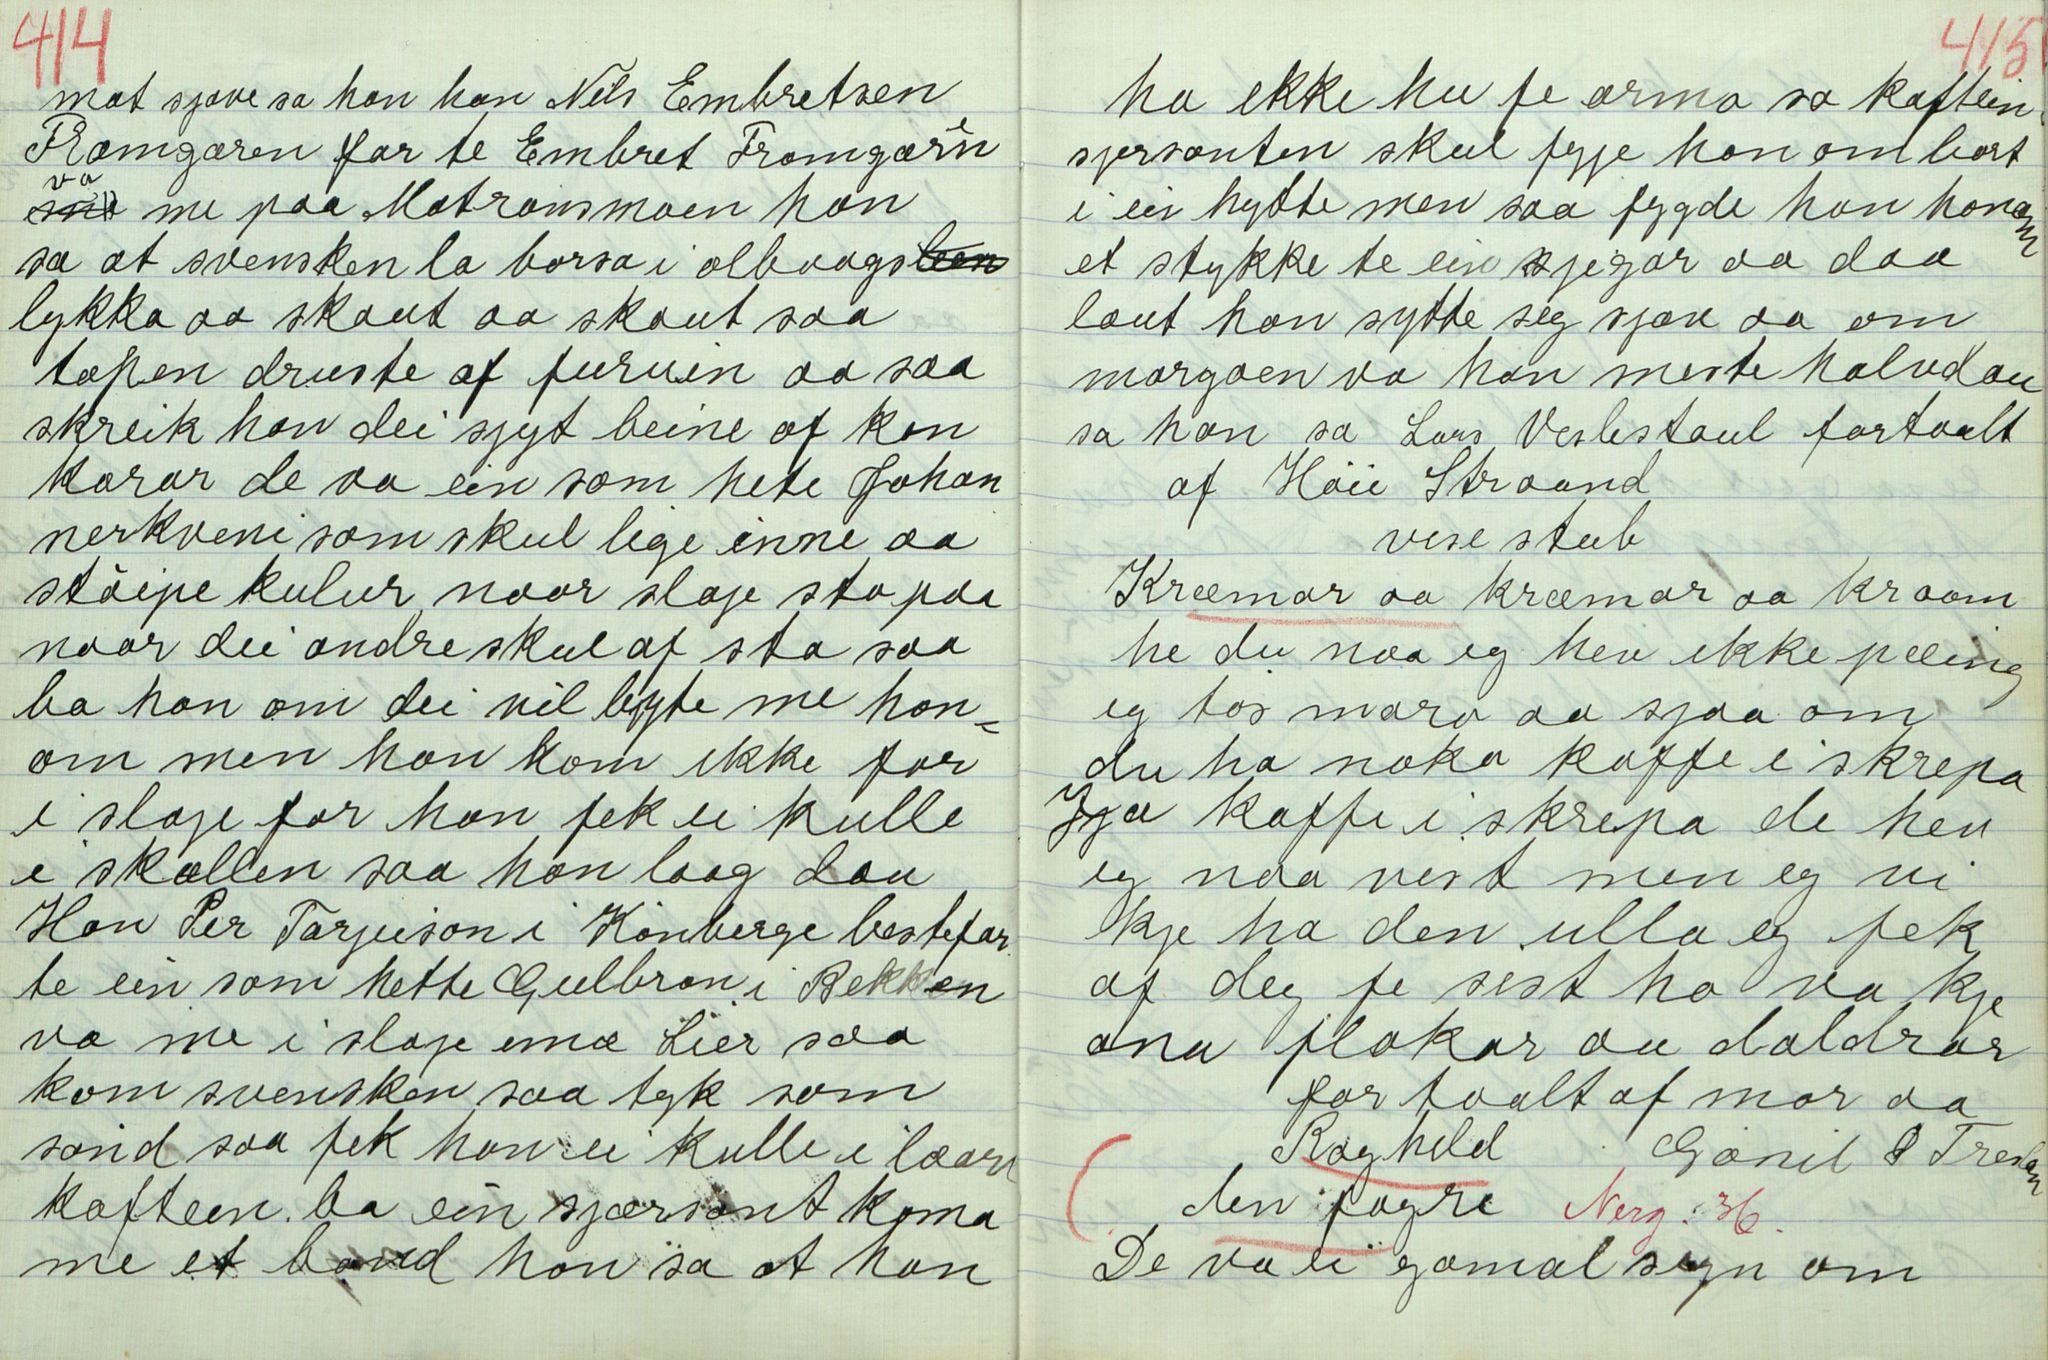 414
mat sjøve sa han han Nils Embretsen
Framgaren far te Embret Framgarin
va
me paa Matransmoen han
sa at svensken la børsa i alboogs
lykka aa skaut aa skaut saa
tapen druste af furuin aa saa
skreik han dei sjyt beine af kon
karar de va ein som hete Johan
nerkveni som skul lige inne aa
støipe kulur naar slage sto paa
naar dei andre skul af sta saa
ba han om dei vil byte me han=
om men han kom ikke for
i slage for han fek ei kulle
i skallen saa han laag dau
Han Per Tarjeison i Kønberge bestefar
te ein som hette Gulbran i Bekken
va me i slage emæ Lier saa
kom svensken saa tyk som
sand saa fek han ei kulle i laare
kaftein ba ein sjærsant koma
me et band han sa at han
415
ha ikke hu fe arma sa kaftein
sjersanten skul fyje han om bort
i ein hytte men saa fygde han honom
et stykke te ein sjegar aa daa
laut han sytte seg sjøv aa om
morgaen va han meste halvdau
sa han sa Lars Veslestaul fortaalt
af Høie Straand
vise stub
Kræmar aa kræmar aa kraam
he du naa eg hev ikke pæing
eg tos mara aa sjaa om
du ha noka kaffe i skrepa
Jja kaffe i skrepa de hev
eg naa vist men eg vi
kje ha den ulla eg fek
af deg fe sist ho va kje
ana flakar au daldrar
fortaalt af mor aa
Ragheld Gønil T Treslan
den fagre Nerg. 36.
De va ei gamal segn om